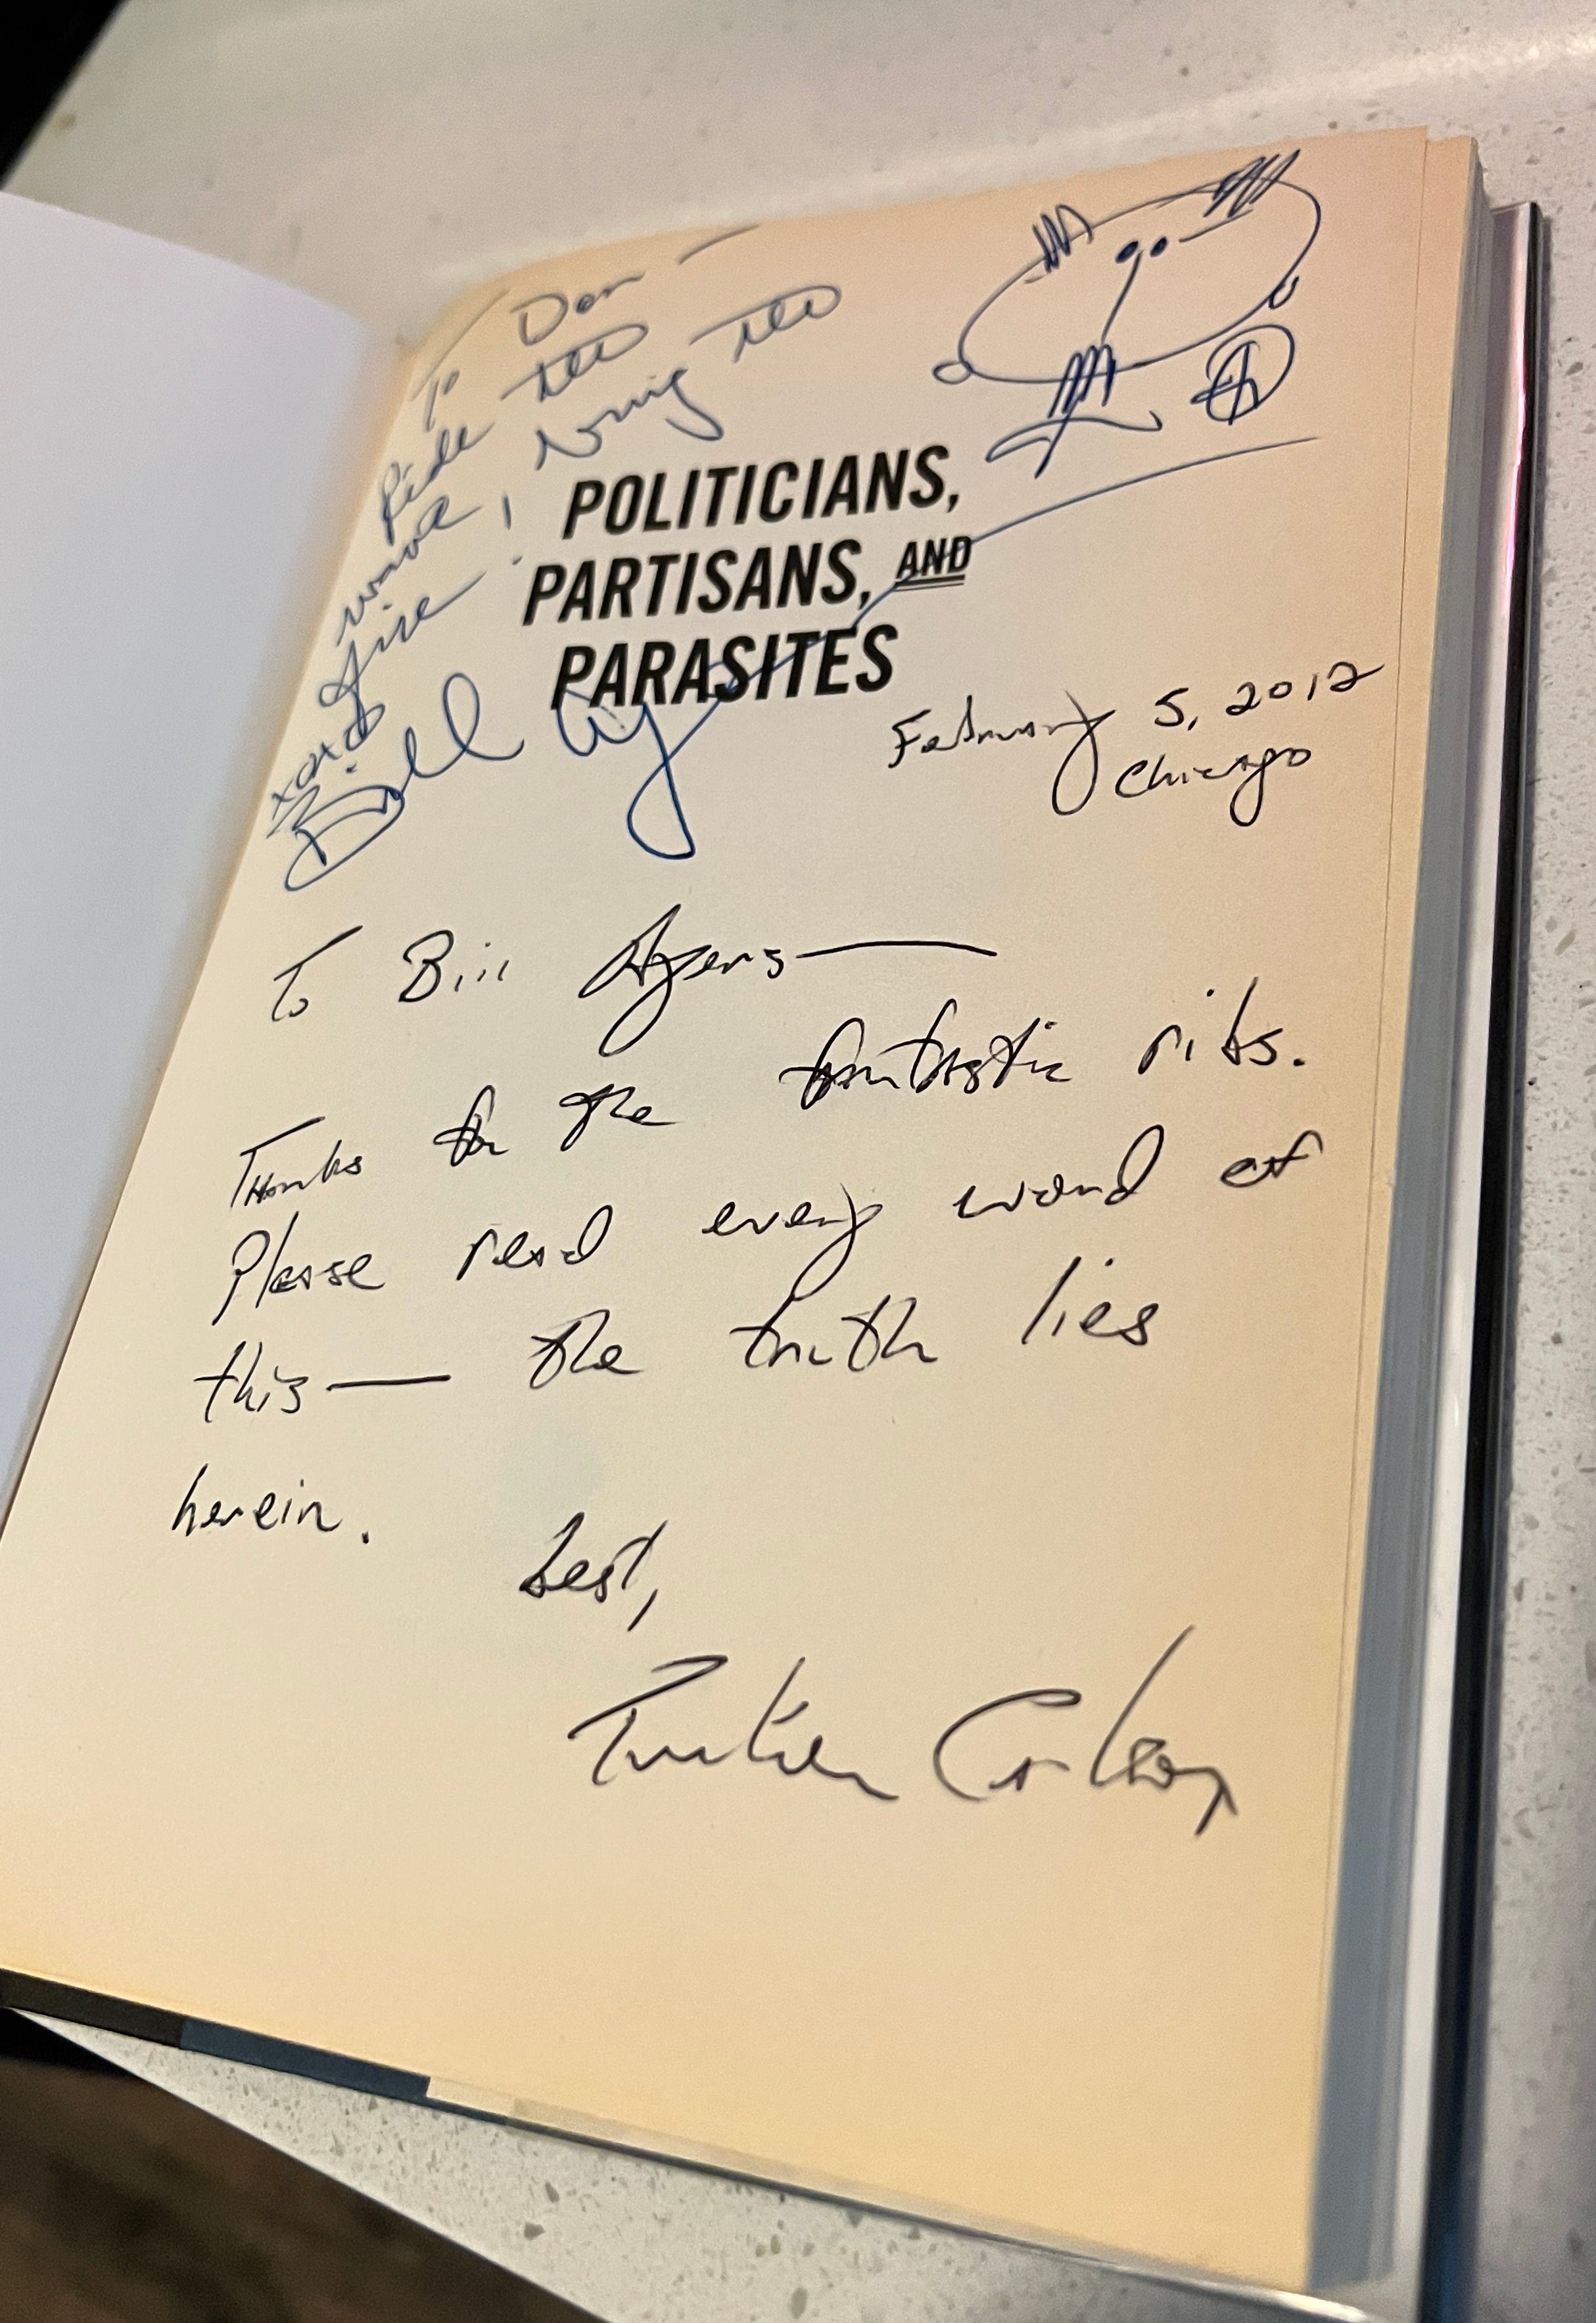 To Dan —
Ride the
wave, bring the
fire!
xoxo
Bill Ay
POLITICIANS,
PARTISANS, AND
PARASITES
February 5, 2012
Chicago
To Bill Ayers —
Thanks for the fantastic ribs.
Please read every word of
this — the truth lies
herein.
Best,
Tucker Carlson